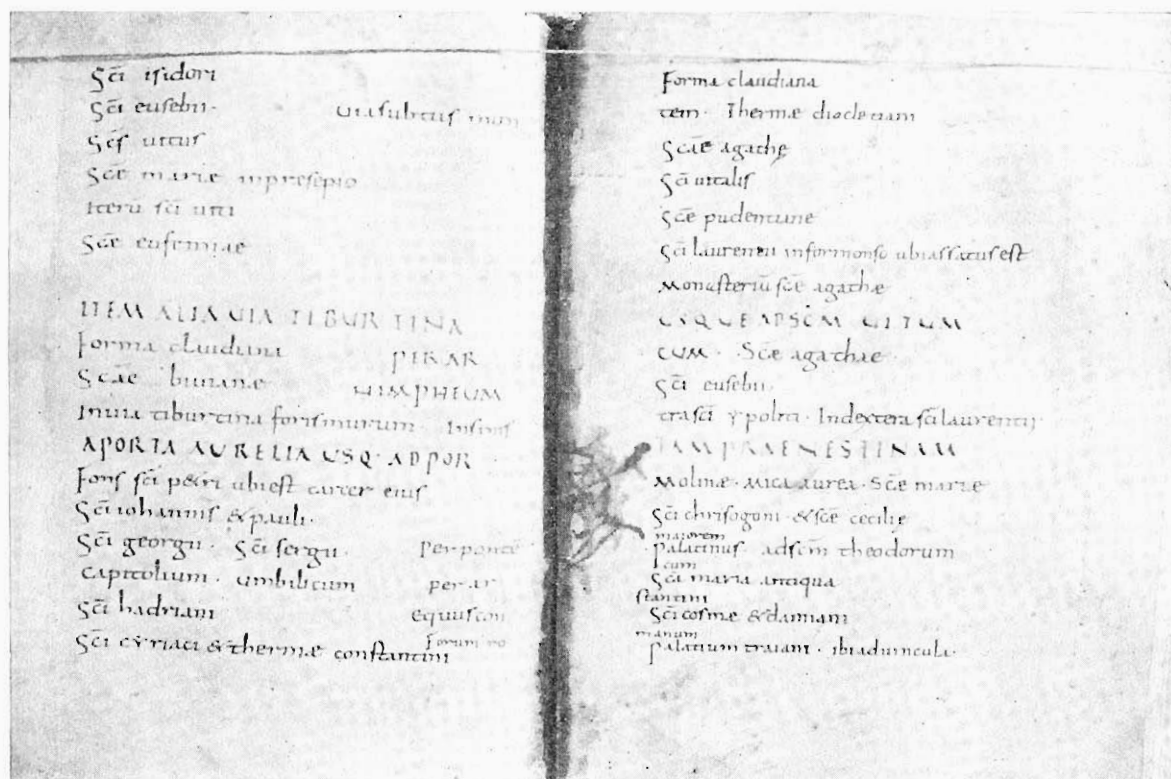 Sc̄i isidori
Sc̄i eusebii · Uia subtus mon
Sc̄s uitus
Sc̄e mariae in presepio
Iterū sc̄i uiti
Sc̄e eufemiae
ITEM ALIA UIA TIBURTINA
Forma claudiana PER AR
Scāe uiuianae NIMPHEUM
In uia tiburtina foris murum · In sinis
A PORTA AURELIA USQ · AD POR
Fons sc̄i petri ubi est carcer eius
Sc̄i iohannis & pauli ·
Sc̄i georgii · Sc̄i sergii · Per pontē
Capitolium · umbilicum per ar
Sc̄i hadriani equus con
Sc̄i cyriaci & thermae constantini forum ro
Forma claudiana
tem · Thermae diocletiani
Scāe agathę
Sc̄i uitalis
Sc̄e pudentiane
Sc̄i laurentii in formonso ubi assatus est
Monasteriū sc̄e agathae
USQUE AD SC̄M UITUM
CUM · Sc̄e agathae ·
Sc̄i eusebii
tra sc̄i ypoliti · In dextera sc̄i laurentii ·
IAM PRAENESTINAM
Molinae · MICA aurea · Sc̄e mariae
Sc̄i chrisogoni · & sc̄e cecilie
maiorem
palatinus · ad sc̄m theodorum
cum
Sc̄i maria antiqua
stantini
Sc̄i cosmae & damiani
manum
palatium traiani · ibi ad uincula ·